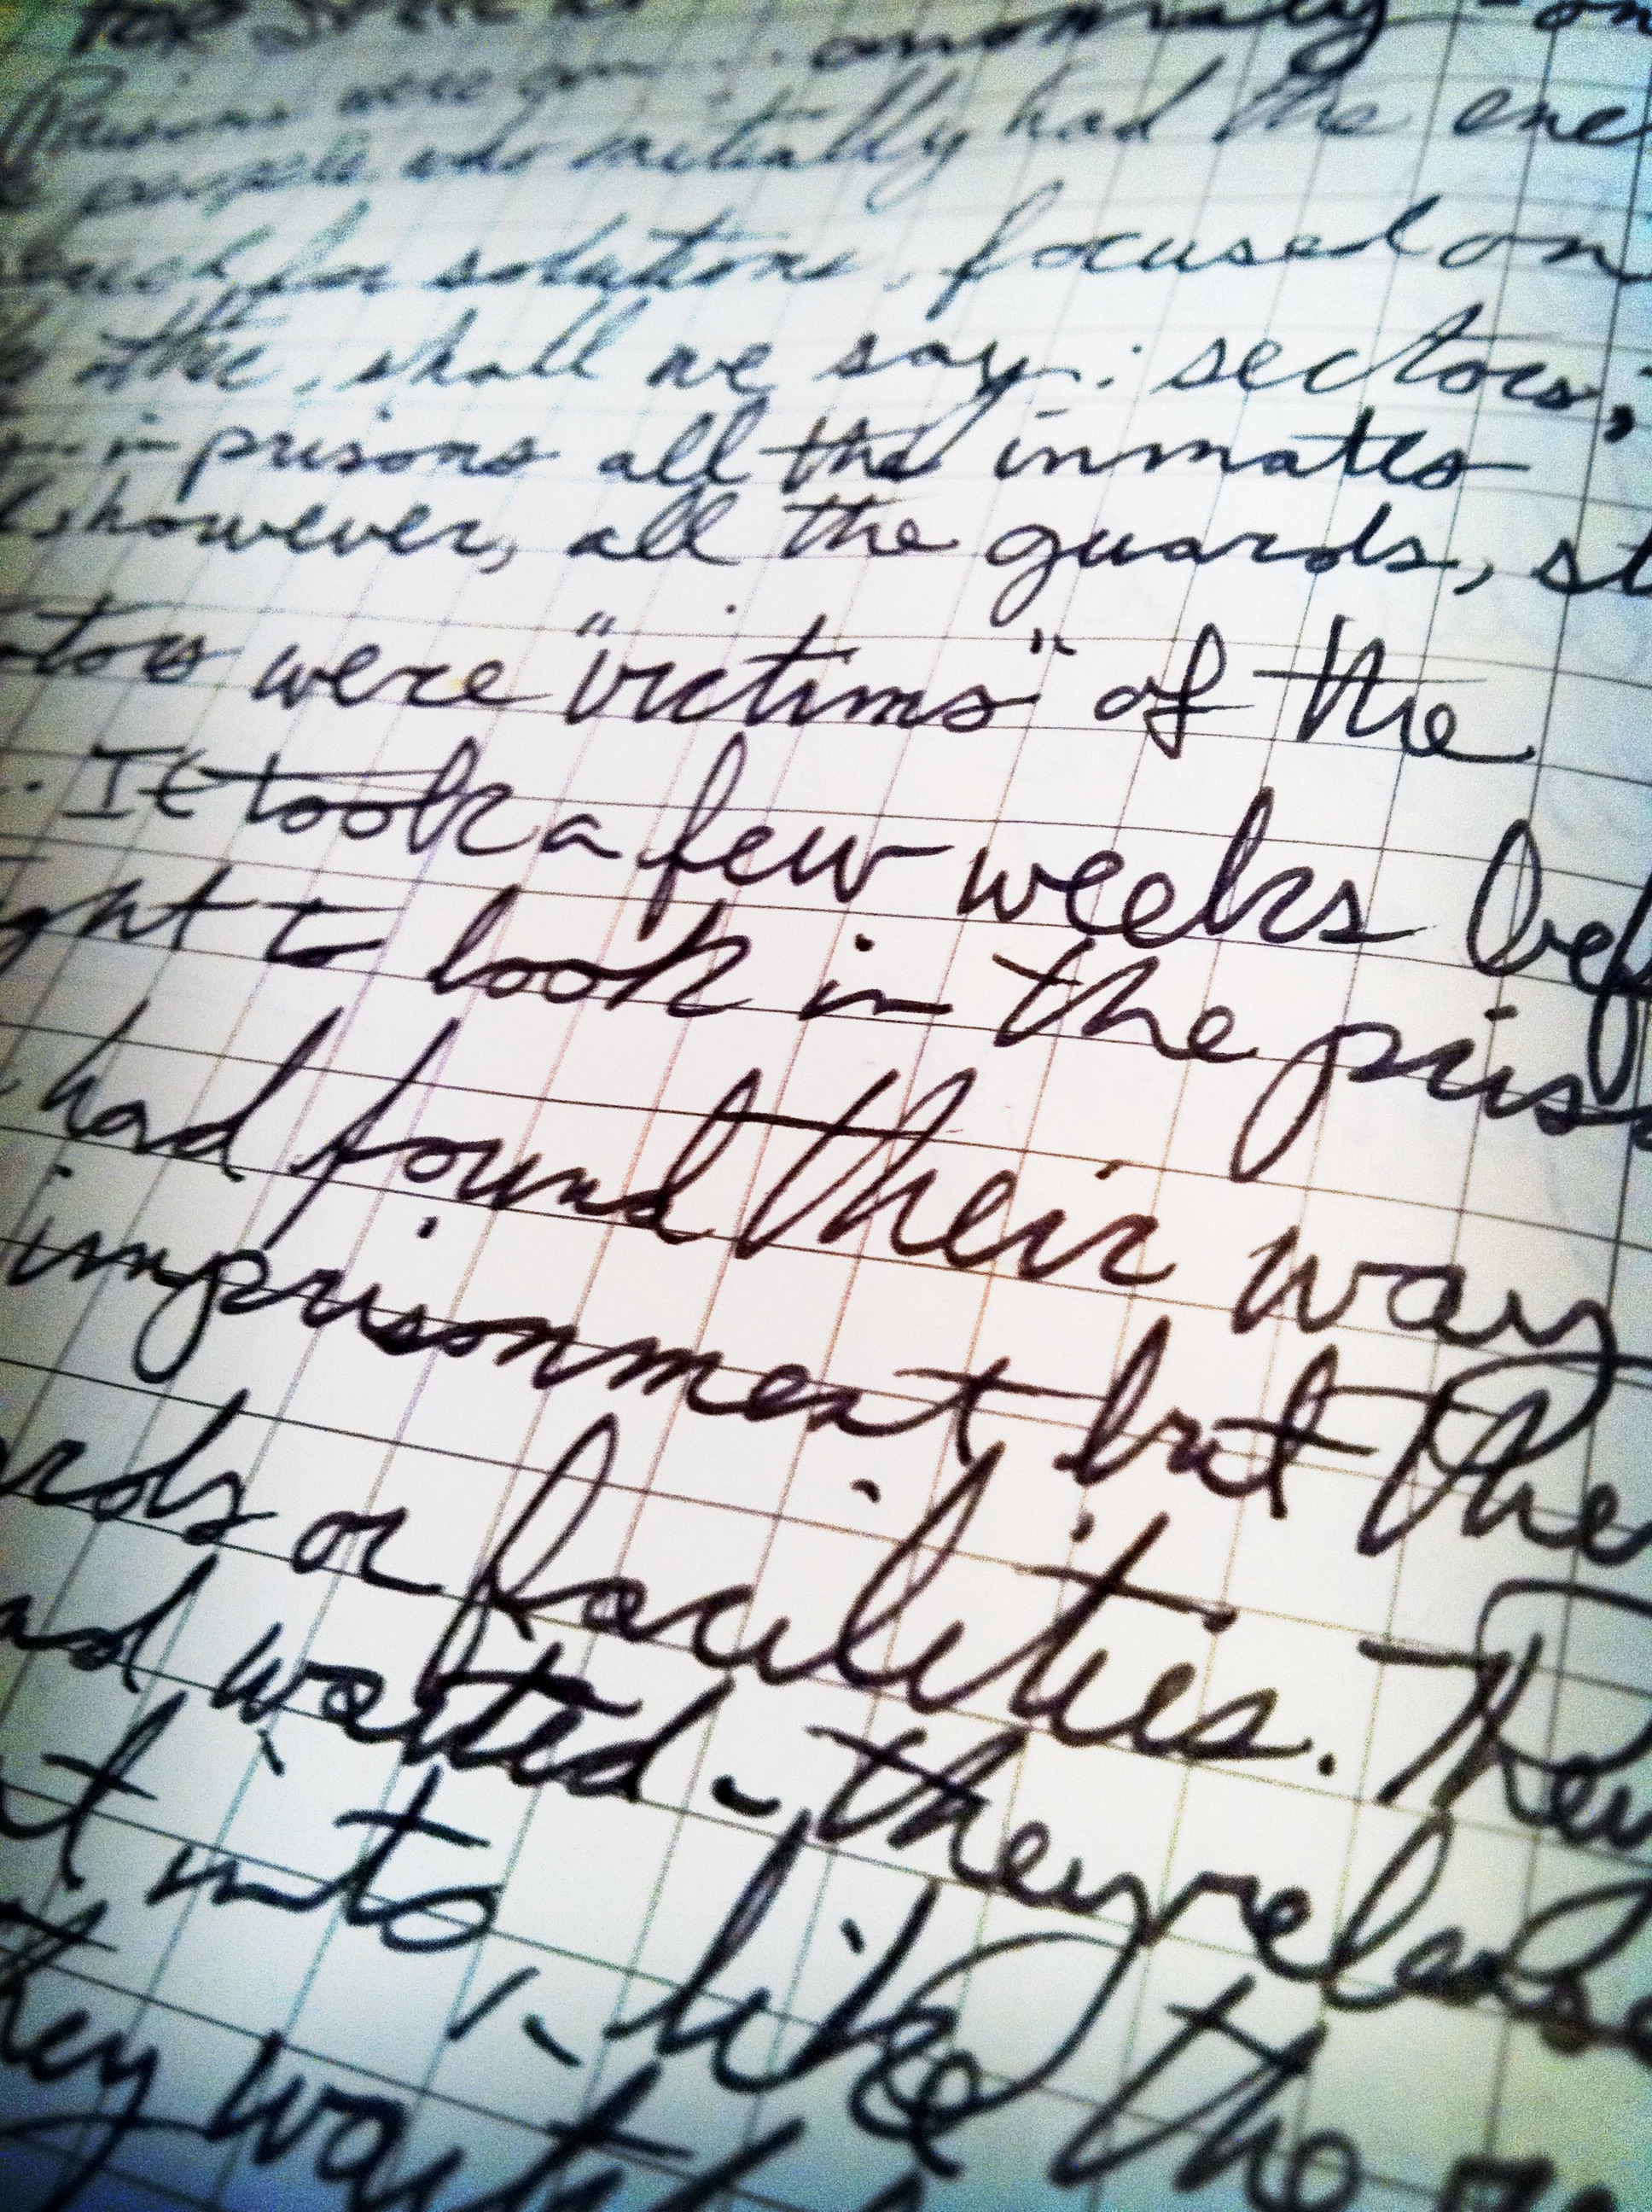 Prisons were an anomaly - on
people who initially had the ene
for solutions, focused on
shall we say: sectors;
in prisons all the inmates
however, all the guards, st
ators were "victims" of the
It took a few weeks bef
ght to look in the pris
had found their way
imprisonment but the
ards or facilities. They
and waited - they
t into - like the
they